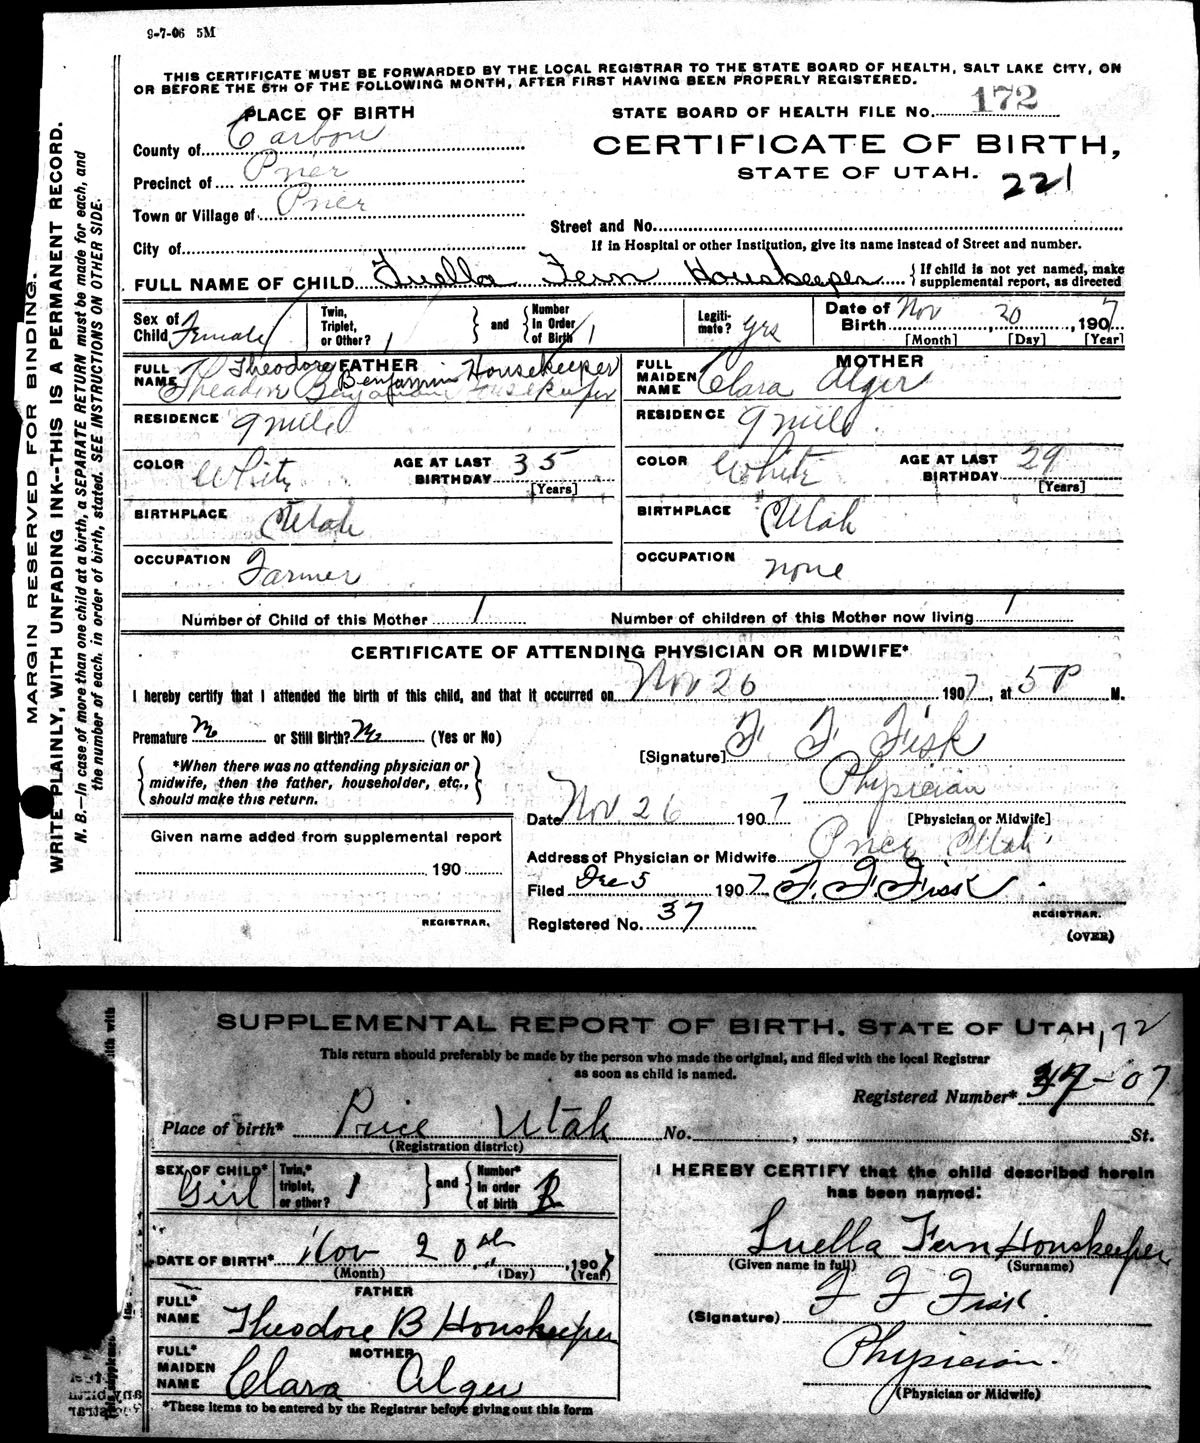 9-7-06 5M
THIS CERTIFICATE MUST BE FORWARDED BY THE LOCAL REGISTRAR TO THE STATE BOARD OF HEALTH, SALT LAKE CITY, ON
OR BEFORE THE 5TH OF THE FOLLOWING MONTH, AFTER FIRST HAVING BEEN PROPERLY REGISTERED.
MARGIN RESERVED FOR BINDING.
WRITE PLAINLY, WITH UNFADING INK--THIS IS A PERMANENT RECORD.
N. B.—In case of more than one child at a birth, a SEPARATE RETURN must be made for each, and
the number of each, in order of birth, stated. SEE INSTRUCTIONS ON OTHER SIDE.
PLACE OF BIRTH
County of Carbon
Precinct of Price
Town or Village of Price
City of
STATE BOARD OF HEALTH FILE No. 172
CERTIFICATE OF BIRTH,
STATE OF UTAH. 221
Street and No.
If in Hospital or other Institution, give its name instead of Street and number.
FULL NAME OF CHILD Luella Fern Houskeeper { If child is not yet named, make
supplemental report, as directed
Sex of Child Female
Twin, Triplet, or Other? 1 } and { Number In Order of Birth 1
Legitimate? yes
Date of Birth Nov, 20, 1907
[Month] [Day] [Year]
FATHER
FULL NAME Theodore Benjammin Housekeeper
Theadore Benjamin Housekeeper
RESIDENCE 9 mile
COLOR White AGE AT LAST BIRTHDAY 35
[Years]
BIRTHPLACE Utah
OCCUPATION Farmer
MOTHER
FULL MAIDEN NAME Clara Alger
RESIDENCE 9 mile
COLOR White AGE AT LAST BIRTHDAY 29
[Years]
BIRTHPLACE Utah
OCCUPATION none
Number of Child of this Mother 1 Number of children of this Mother now living 1
CERTIFICATE OF ATTENDING PHYSICIAN OR MIDWIFE*
I hereby certify that I attended the birth of this child, and that it occurred on Nov 20 1907, at 5 P M.
Premature No or Still Birth? No (Yes or No)
*When there was no attending physician or
midwife, then the father, householder, etc.,
should make this return.
[Signature] F. F. Fisk
Physician
[Physician or Midwife]
Date Nov. 26 1907
Address of Physician or Midwife Price Utah
Given name added from supplemental report
190
REGISTRAR.
Filed Dec 5 1907 F. F. Fisk
REGISTRAR.
Registered No. 37
(OVER)
SUPPLEMENTAL REPORT OF BIRTH. STATE OF UTAH, 172
This return should preferably be made by the person who made the original, and filed with the local Registrar
as soon as child is named.
Registered Number* 37-07
Place of birth* Price Utah No. , St.
(Registration district)
SEX OF CHILD* Girl
Twin,* triplet, or other? 1 } and { Number* In order of birth
DATE OF BIRTH* Nov 20th, 1907
(Month) (Day) (Year)
FATHER
FULL* NAME Theodore B Houskeeper
MOTHER
FULL* MAIDEN NAME Clara Alger
*These items to be entered by the Registrar before giving out this form
I HEREBY CERTIFY that the child described herein
has been named:
Luella Fern Houskeeper
(Given name in full) (Surname)
(Signature) F F Fisk
Physician.
(Physician or Midwife)